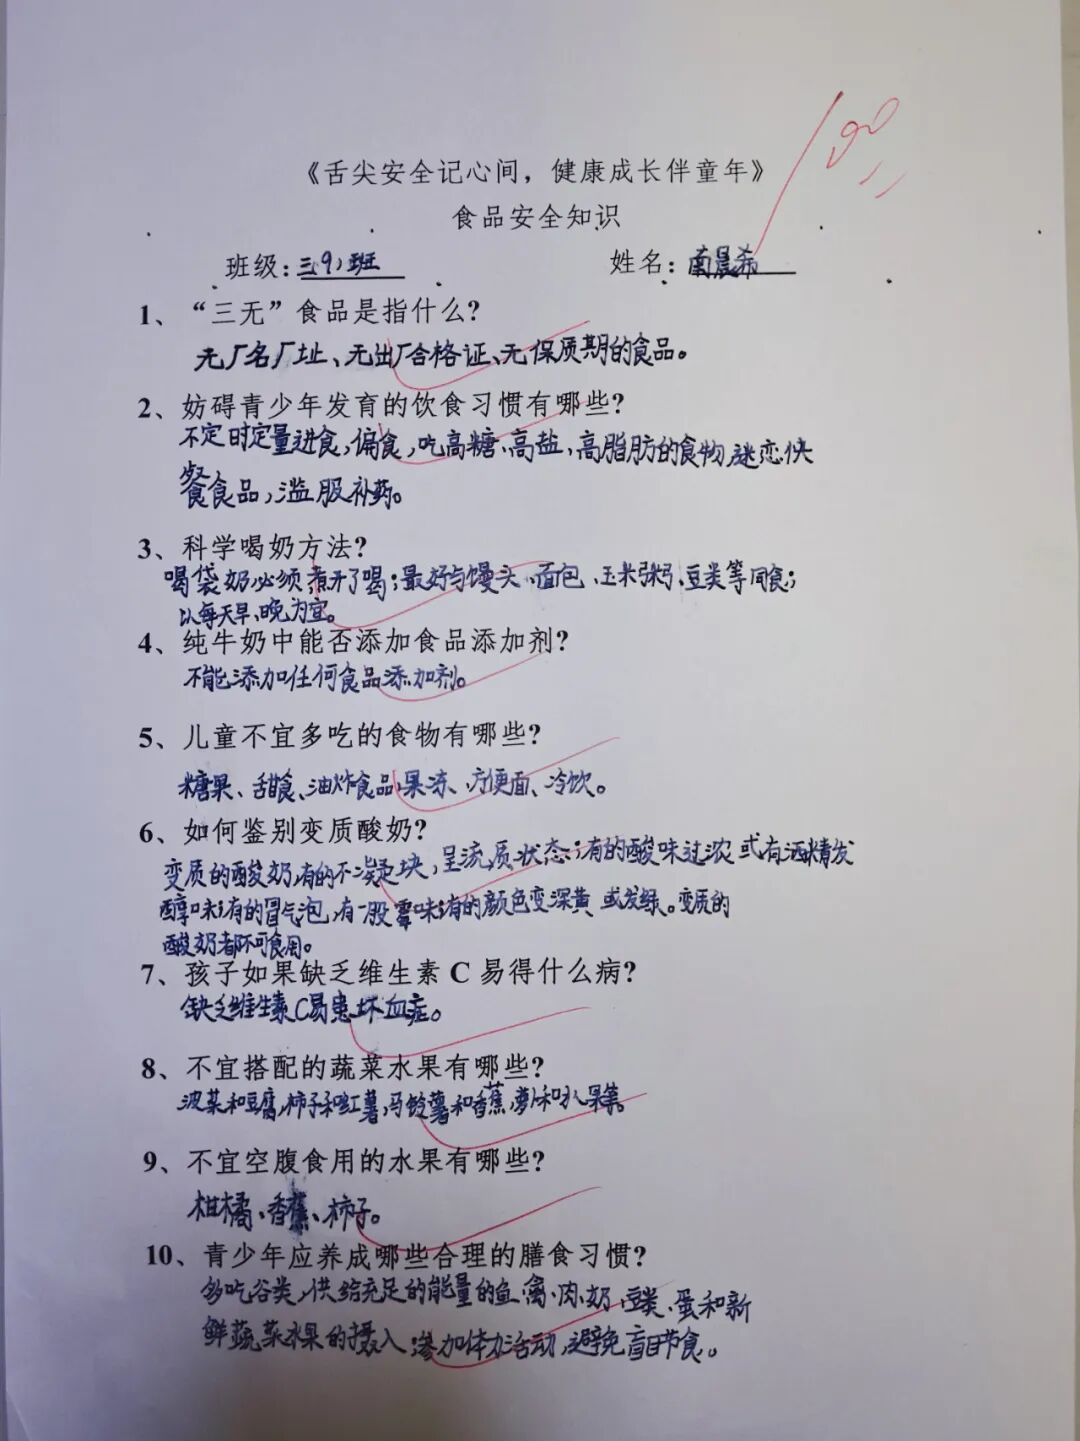 100
《舌尖安全记心间，健康成长伴童年》
食品安全知识
班级：三（9）班 姓名：南晨希
1、“三无”食品是指什么？
无厂名厂址、无出厂合格证、无保质期的食品。
2、妨碍青少年发育的饮食习惯有哪些？
不定时定量进食，偏食，吃高糖、高盐、高脂肪的食物，迷恋快
餐食品，滥服补药。
3、科学喝奶方法？
喝袋奶必须煮开了喝；最好与馒头、面包、玉米粥、豆类等同食；
以每天早、晚为宜。
4、纯牛奶中能否添加食品添加剂？
不能添加任何食品添加剂。
5、儿童不宜多吃的食物有哪些？
糖果、甜食、油炸食品、果冻、方便面、冷饮。
6、如何鉴别变质酸奶？
变质的酸奶，有的不凝块，呈流质状态；有的酸味过浓或有酒精发
酵味；有的冒气泡，有一股霉味；有的颜色变深黄或发绿。变质的
酸奶都不可食用。
7、孩子如果缺乏维生素C易得什么病？
缺乏维生素C易患坏血症。
8、不宜搭配的蔬菜水果有哪些？
波菜和豆腐，柿子和红薯，马铃薯和香蕉，萝卜和水果等。
9、不宜空腹食用的水果有哪些？
柑橘、香蕉、柿子。
10、青少年应养成哪些合理的膳食习惯？
多吃谷类，供给充足的能量的鱼、禽、肉、奶、豆类、蛋和新
鲜蔬菜水果的摄入；参加体力活动，避免盲目节食。